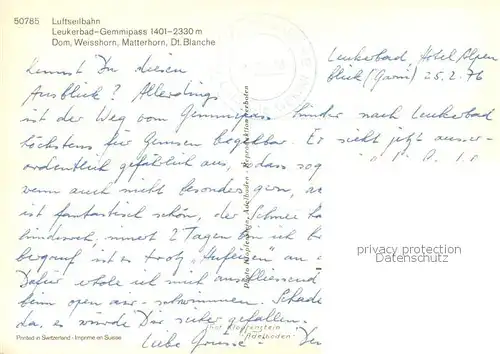 50785 Luftseilbahn
Leukerbad-Gemmipass 1401-2330 m
Dom, Weisshorn, Matterhorn, Dt. Blanche
Leukerbad, Hotel Alpen
blick (Garni) 25.2.76
kennst Du diesen
Ausblick? Allerdings
ist der Weg vom Gemmipass hinter nach Leukerbad
höchstens für Gemsen begehbar. Es sieht jetzt ausser-
ordentlich gefährlich aus, sodass sog
wenn auch nicht besonders gern,
ist fantastisch schön, der Schnee
2 Tagen bin ich
bergauf ist es trotz "Aufeisen" an
Dafür erhole ich mich anschliessend
beim open air-schwimmen. Schade
da, es würde Dir sicher gefallen.
Liebe Grüsse -
Photo Klopfenstein, Adelboden - Reproduktion verboten
Fot. Klopfenstein
Adelboden
Printed in Switzerland - Imprimé en Suisse
privacy protection
Datenschutz